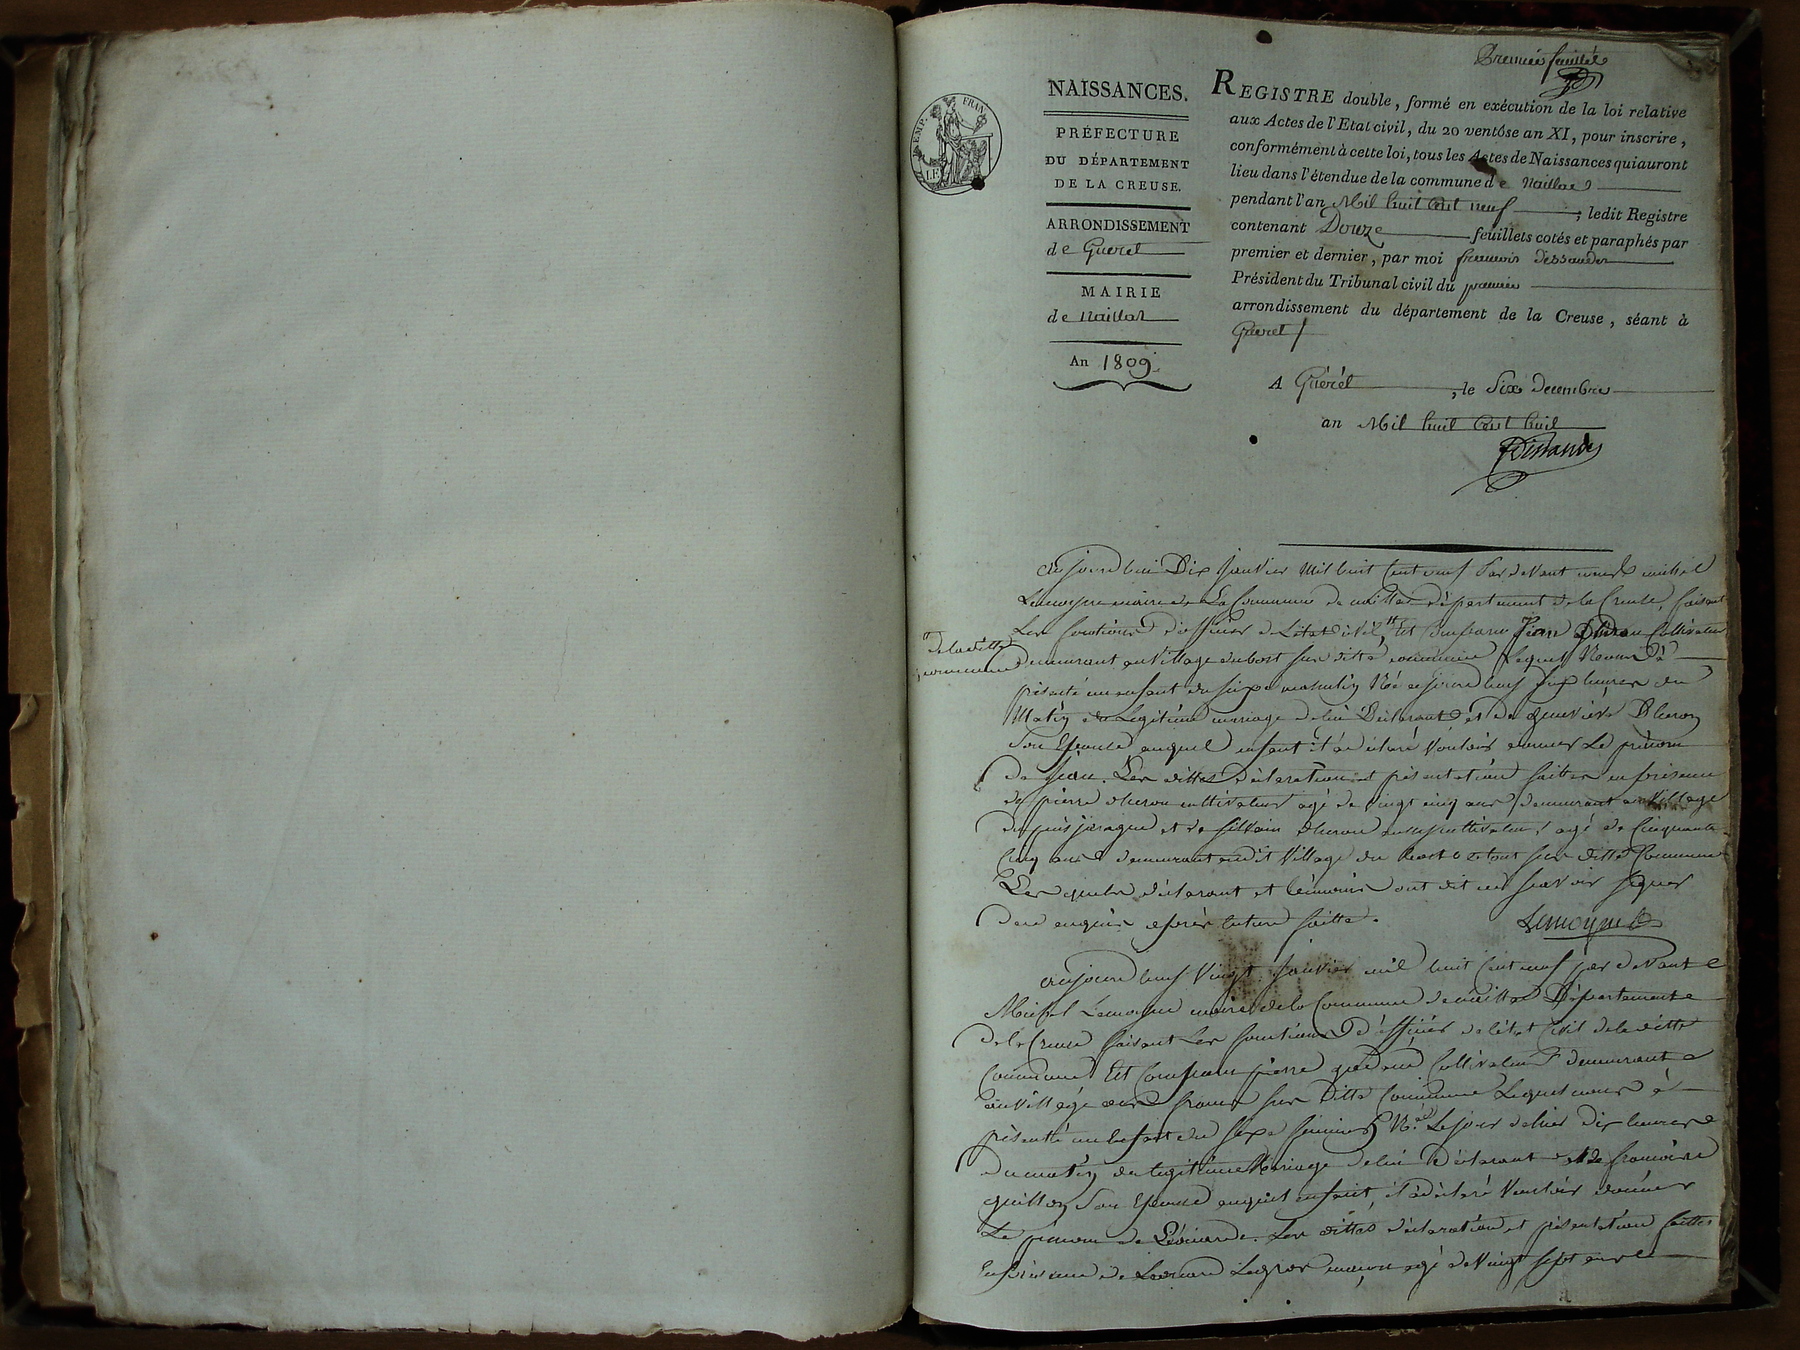 Premier feuillet
NAISSANCES.
PRÉFECTURE
DU DÉPARTEMENT
DE LA CREUSE.
ARRONDISSEMENT
de Gueret
MAIRIE
de Naillat
An 1809.
EMP. FRAN.
REGISTRE double, formé en exécution de la loi relative
aux Actes de l'Etat civil, du 20 ventôse an XI, pour inscrire,
conformément à cette loi, tous les Actes de Naissances qui auront
lieu dans l'étendue de la commune de Naillac
pendant l'an Mil huit Cent neuf ; ledit Registre
contenant Douze feuillets cotés et paraphés par
premier et dernier, par moi francois
Président du Tribunal civil du premier
arrondissement du département de la Creuse, séant à
Gueret
A Guéret, le Six Decembre
an Mil huit Cent huit
aujourd'hui Dix Janvier Mil huit Cent neuf Par devant nous michel
Lemoyne maire de La Commune de naillac département de la Creuse, faisant
Les fonctions d'officier de L'état Civil, Est Comparu Jean Cultivateur
de laditte
commune
demeurant au Village dubost sur ditte commune Lequel Nous à
présenté un enfant du sexe masculin Né cejourd'huy heures du
Matin du Légitime mariage de lui Déclarant et de genevieve Dheron
Son Epouse auquel enfant il a déclaré Vouloir donner Le prénom
de jean. Les dittes déclaration et présentation faittes en présence
de pierre dheron cultivateur agé de vingt cinq ans demeurant au Village
de puisjaragne et de silvain dheron cultivateur agé de Cinquante
Cinq ans demeurant audit Village du bost le tout sur ditte Commune
Les quels déclarant et témoins ont dit ne savoir signer
de ce enquis après lecture faitte.
Lemoyne
aujourd'huy Vingt Janvier mil huit Cent neuf par devant
Michel Lemoyne maire de la Commune de naillac Département
de la Creuse faisant Les fonctions d'officier de l'état Civil de laditte
Commune Est Comparu pierre Cultivateur demeurant
au Village sur ditte Commune Lequel nous à
présenté un Enfant du sexe feminin Né Le jour d'hier dix heures
du matin du légitime Mariage de lui Déclarant et de francoise
guillon Son Epouse auquel enfant, il a déclaré Vouloir donner
Le prénom de Léonarde. Les dittes déclaration et présentation faittes
En présence de Leonard Legros macon agé de Vingt sept ans